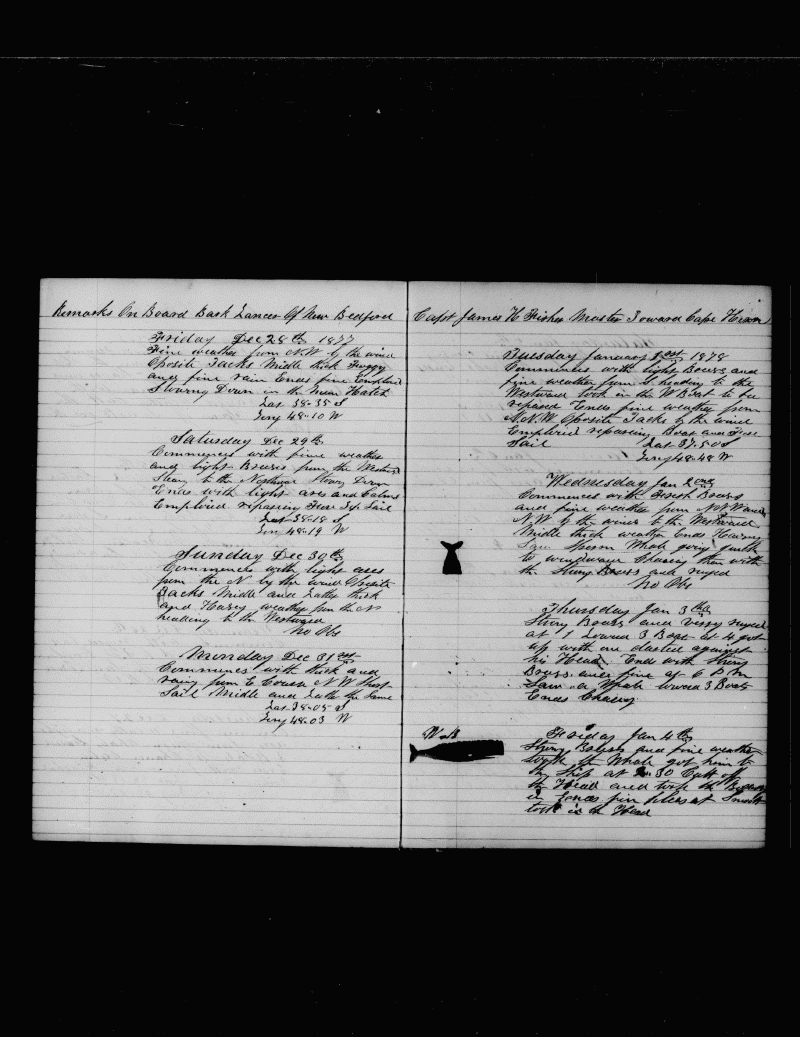 Remarks On Board Bark Lancer Of New Bedford
Friday Dec 28th 1877
Fine weather from NW by the wind
Oposite Tacks Middle thick Fuggy
and fine rain Ends fine Employed
Stowing Down in the Main Hatch
Lat 38-35 S
Long 48-10 W
Saturday Dec 29th
Commences with fine weather
and light Breses from the Westward
Steary to the Northwar Stowing Down
Ends with light ares and Calms
Employed repairing Fore Top Sail
Lat 38-18 S
Long 48-19 W
Sunday Dec 30th
Commences with light ares
from the N by the wind Oposite
Tacks Middle and Lattr thick
and Hasey weather from the N
heading to the Westward
No Obs
Monday Dec 31st
Commences with thick and
rainy from E Course N W Short
Sail Middle and Lattr the Same
Lat 38-05 S
Long 48-03 W
Capt James H Fisher Master Toward Cape Horn
Tuesday January 1st 1878
Commences with light Beses and
fine weather from S heading to the
Westward took in the W Boat to be
repaired Ends fine weather from
N.N.W. Oposite Tacks by the wind
Employed repairing Boat and Fore
Sail Lat 37-50 S
Long 48-48 W
Wednesday Jan 2ond
Commences with Fresh Breses
and fine weather from NNW and
N.W by the wind to the Westward
Middle thick weather Ends
Saw Sperm Whale going quick
to windward Chaseing then with
the Strong Breses and ruged
No Obs
Thursday Jan 3th
Strong Breses and verry ruged
at 1 Lowered 3 Boats at 4 got
up with one darted against
his Head Ends with Strong
Breses and fine at 6 P M
Saw a Whale lowered 3 Boats
Ends Chaseing
Friday Jan 4th
Strong Breses and fine weather
took the Whale got him to
the Ship at 2.30 Cutt off
the Head and took the Body
in Ends fine Smooth
took in the Head